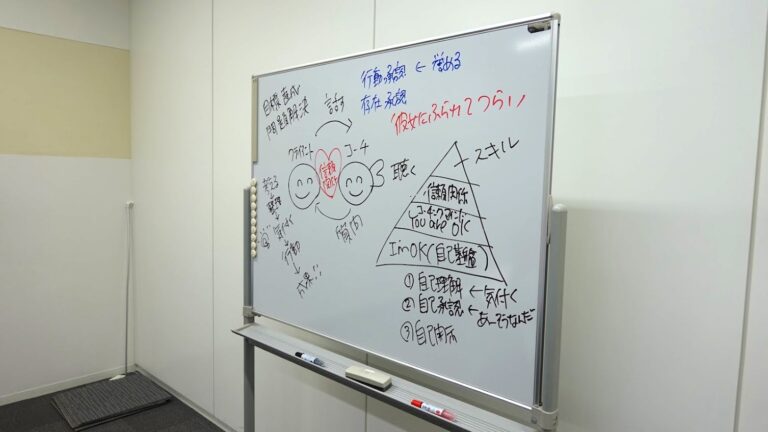 目標達成
問題解決
話す
行動承認 ← 褒める
存在承認
彼女にふられてつらい
クライアント
コーチ
信頼
関係
聴く
質問
考える
↓
↓
気付く
↓
行動
↓
成果!!
スキル
信頼関係
コーチングマインド
You are OK
I'm OK(自己基盤)
① 自己理解 ← 気付く
② 自己承認 ← あーそうなんだ
③ 自己開示